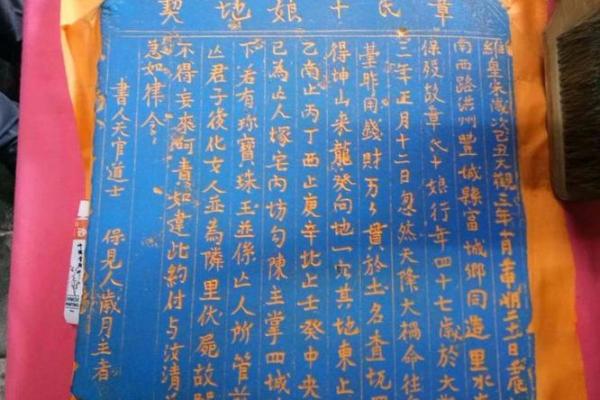 章氏十娘地契
維皇宋歲次己丑大觀三年十月
南西路洪州豐城縣富城鄉同造里水
保殁故章氏十娘行年四十七歲於大
三年正月十二日忽然天降大禍命往
昨用錢財万々貫於土名查坑
得坤山来龍癸向地一穴其地東止
乙南止丙丁西止庚辛北止壬癸中央
已為亡人塚宅內坊勾陳主掌四城
下若有珎寶珠玉並係亡人所管
亡君子後化女人並為隣里伏屍故
不得妄來呵責如違此約付与汝清
急如律令
書人天官道士 保見人歲月主者